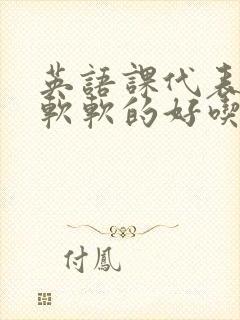 英語課代表
軟軟的好喫
付鳳